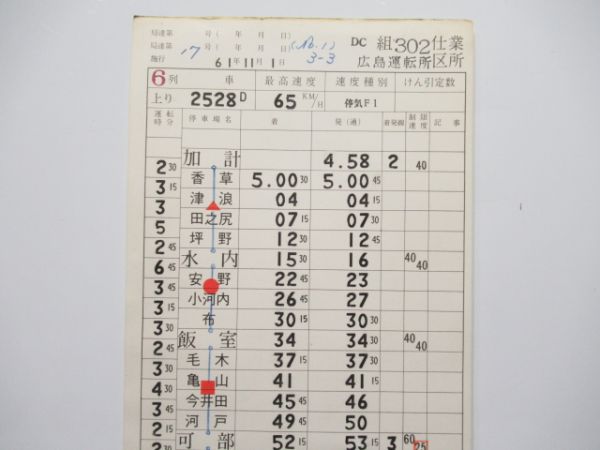 局達第 号( 年 月 日) (No.1) DC 組302仕業
局達第 17号( 年 月 日) 3-3 広島運転所区所
施行 61年11月1日
6列 車 最高速度 速度種別 けん引定数
上り 2528D 65KM/H 停気F1
運転時分 停車場名 着 発(通) 着発線 制限速度 記事
加計 4.58 2 40
2 30
香草 5.00 30 5.00 45
3 15
津浪 04 04 15
3
田之尻 07 15 07 30
5
坪野 12 30 12 45
2 45
水内 15 30 16 40 40
6 45
安野 22 45 23
3 45
小河内 26 45 27
3 15
布 30 15 30 30
3 30
飯室 34 34 30 40 40
2 45
毛木 37 15 37 30
3 30
亀山 41 41 15
4 30
今井田 45 45 46
3 45
河戸 49 45 50
2 30
可部 52 15 53 15 3 60 25